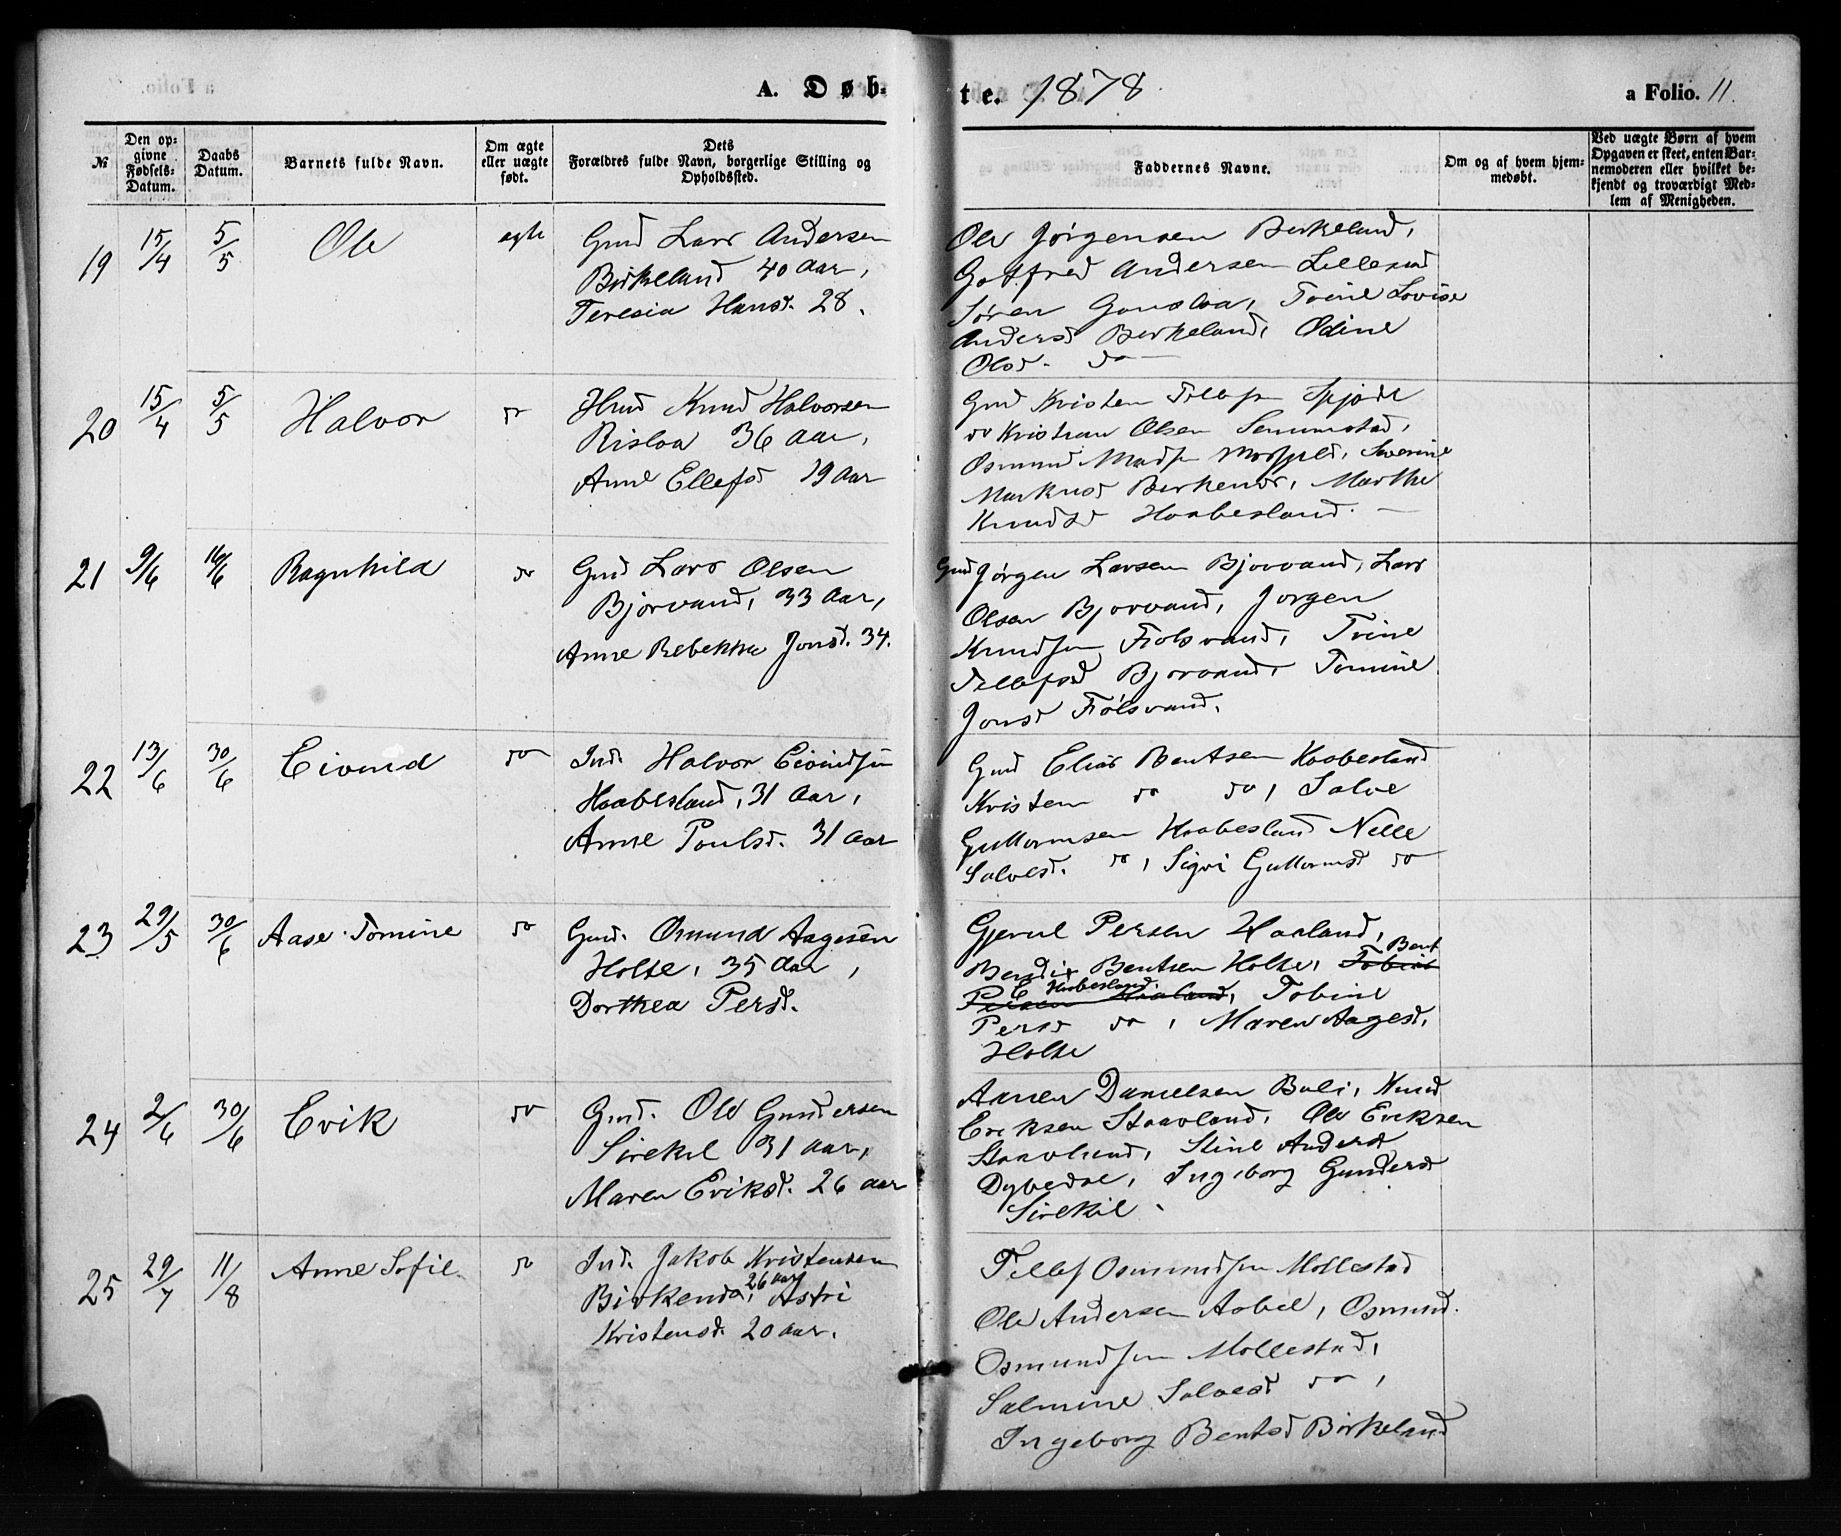 A. Døb-
te. 1878
a Folio. 11.
№
Den op-
givne
Fødsels-
Datum.
Daabs
Datum.
Barnets fulde Navn.
Om ægte
eller uægte
født.
Dets
Forældres fulde Navn, borgerlige Stilling og
Opholdssted.
Faddernes Navne.
Om og af hvem hjem-
medøbt.
Ved uægte Børn af hvem
Opgaven er skeet, enten Bar-
nemoderen eller hvilket be-
kjendt og troværdigt Med-
lem af Menigheden.
19 15/4 5/5 Ole ægte
Gmd Lars Andersen
Birkeland 40 Aar,
Teresia Hansd. 28.
Ole Jörgensen Birkeland,
Gotfred Andersen Lillesand
Søren Trine Lovise
Andersd Birkeland, Odine
Olsd. do
20 15/4 5/5 Halvor do
Hmd Knud Halvorsen
Risløa 36 Aar,
Anne Ellefsd 19 Aar
Gmd Kristen Tellefsen
do Kristian Olsen Senumstad,
Osmund Madsen Severine
Markusd Birkenes, Marthe
Knudsd Haabesland.
21 9/6 16/6 Ragnhild do
Gmd Lars Olsen
Bjorvand, 33 Aar,
Anne Rebekka Jonsd. 34.
Gmd Jørgen Larsen Bjorvand, Lars
Olsen Bjorvand, Jorgen
Knudsen Fiolsvand, Trine
Tellefsd Bjorvand, Tomine
Jonsd Fiölsvand.
22 13/6 30/6 Eivind do
Ind. Halvor Eivindsen
Haabesland, 31 Aar,
Anne Poulsd. 31 Aar
Gmd Elias Bentsen Haabesland
Kristen do do, Salve
Guttormsen Haabesland Nille
Salvesd. do, Sigri Guttormsd do
23 29/5 30/6 Aase Tomine do
Gmd. Osmund Aagesen
Holte, 35 Aar,
Dorthea Persd.
Gjerul Persen Haaland,
Bendix Bentsen Holte, Tobias Bent
Persen Haaland, E Haabesland. Tobine
Persd do, Maren Aagesd,
Holte
24 2/6 30/6 Erik do
Gmd. Ole Gundersen
Sirekil 31 aar,
Maren Eriksd. 26 aar
Aanen Danielsen Buli, Knud
Eriksen Staavland, Ole Eriksen
Staavland, Stine Andersd
Dybedal, Ingeborg Gundersd
Sirekil.
25 29/7 11/8 Anne Sofie do
Ind. Jakob Kristensen
Birkenes, 26 aar, Astri
Kristensd. 20 aar.
Tellef Osmundsen Mollestad
Ole Andersen Aabel, Osmund.
Osmundsen Mollestad,
Salmine Salvesd do,
Ingeborg Bentsd Birkeland